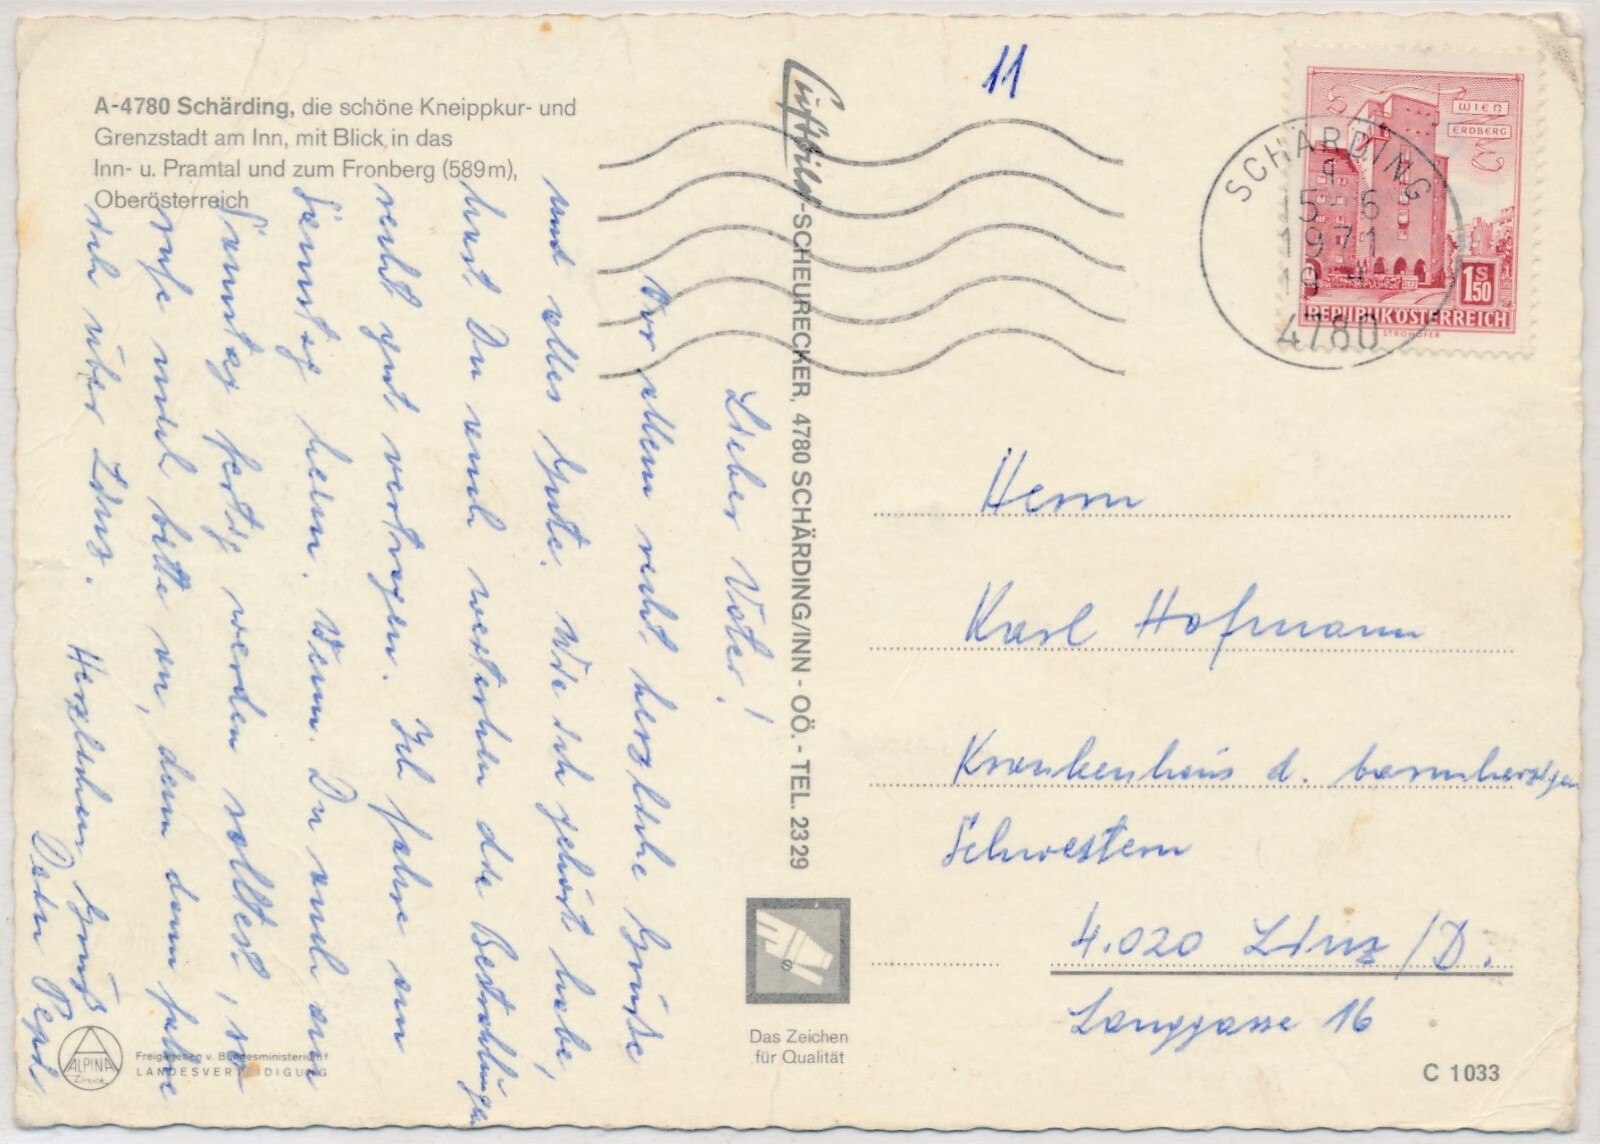 A-4780 Schärding, die schöne Kneippkur- und
Grenzstadt am Inn, mit Blick in das
Inn- u. Pramtal und zum Fronberg (589m),
Oberösterreich
Lieber Vater!
Vor allem recht herzliche Grüße
und alles Gute. Wie ich gehört habe,
hast Du auch weiterhin die Bestrahlungen
recht gut vertragen. Ich fahre am
Samstag heim. Wenn Du auch am
Samstag fertig werden solltest, so
rufe mich bitte an, denn dann fahre
ich über Linz.
Herzlichen Gruß
Dein Pepi
Luftbild-SCHEURECKER, 4780 SCHÄRDING/INN - OÖ. - TEL. 2329
Das Zeichen
für Qualität
ALPINA
Druck
Freigegeben v. Bundesministerium f
LANDESVERTEIDIGUNG
11
WIEN
ERDBERG
1 S 50
REPUBLIK ÖSTERREICH
SCHÄRDING
1
15-6
1971
19
4780
Herrn
Karl Hofmann
Krankenhaus d. barmherzigen
Schwestern
4.020 Linz/D.
Langgasse 16
C 1033